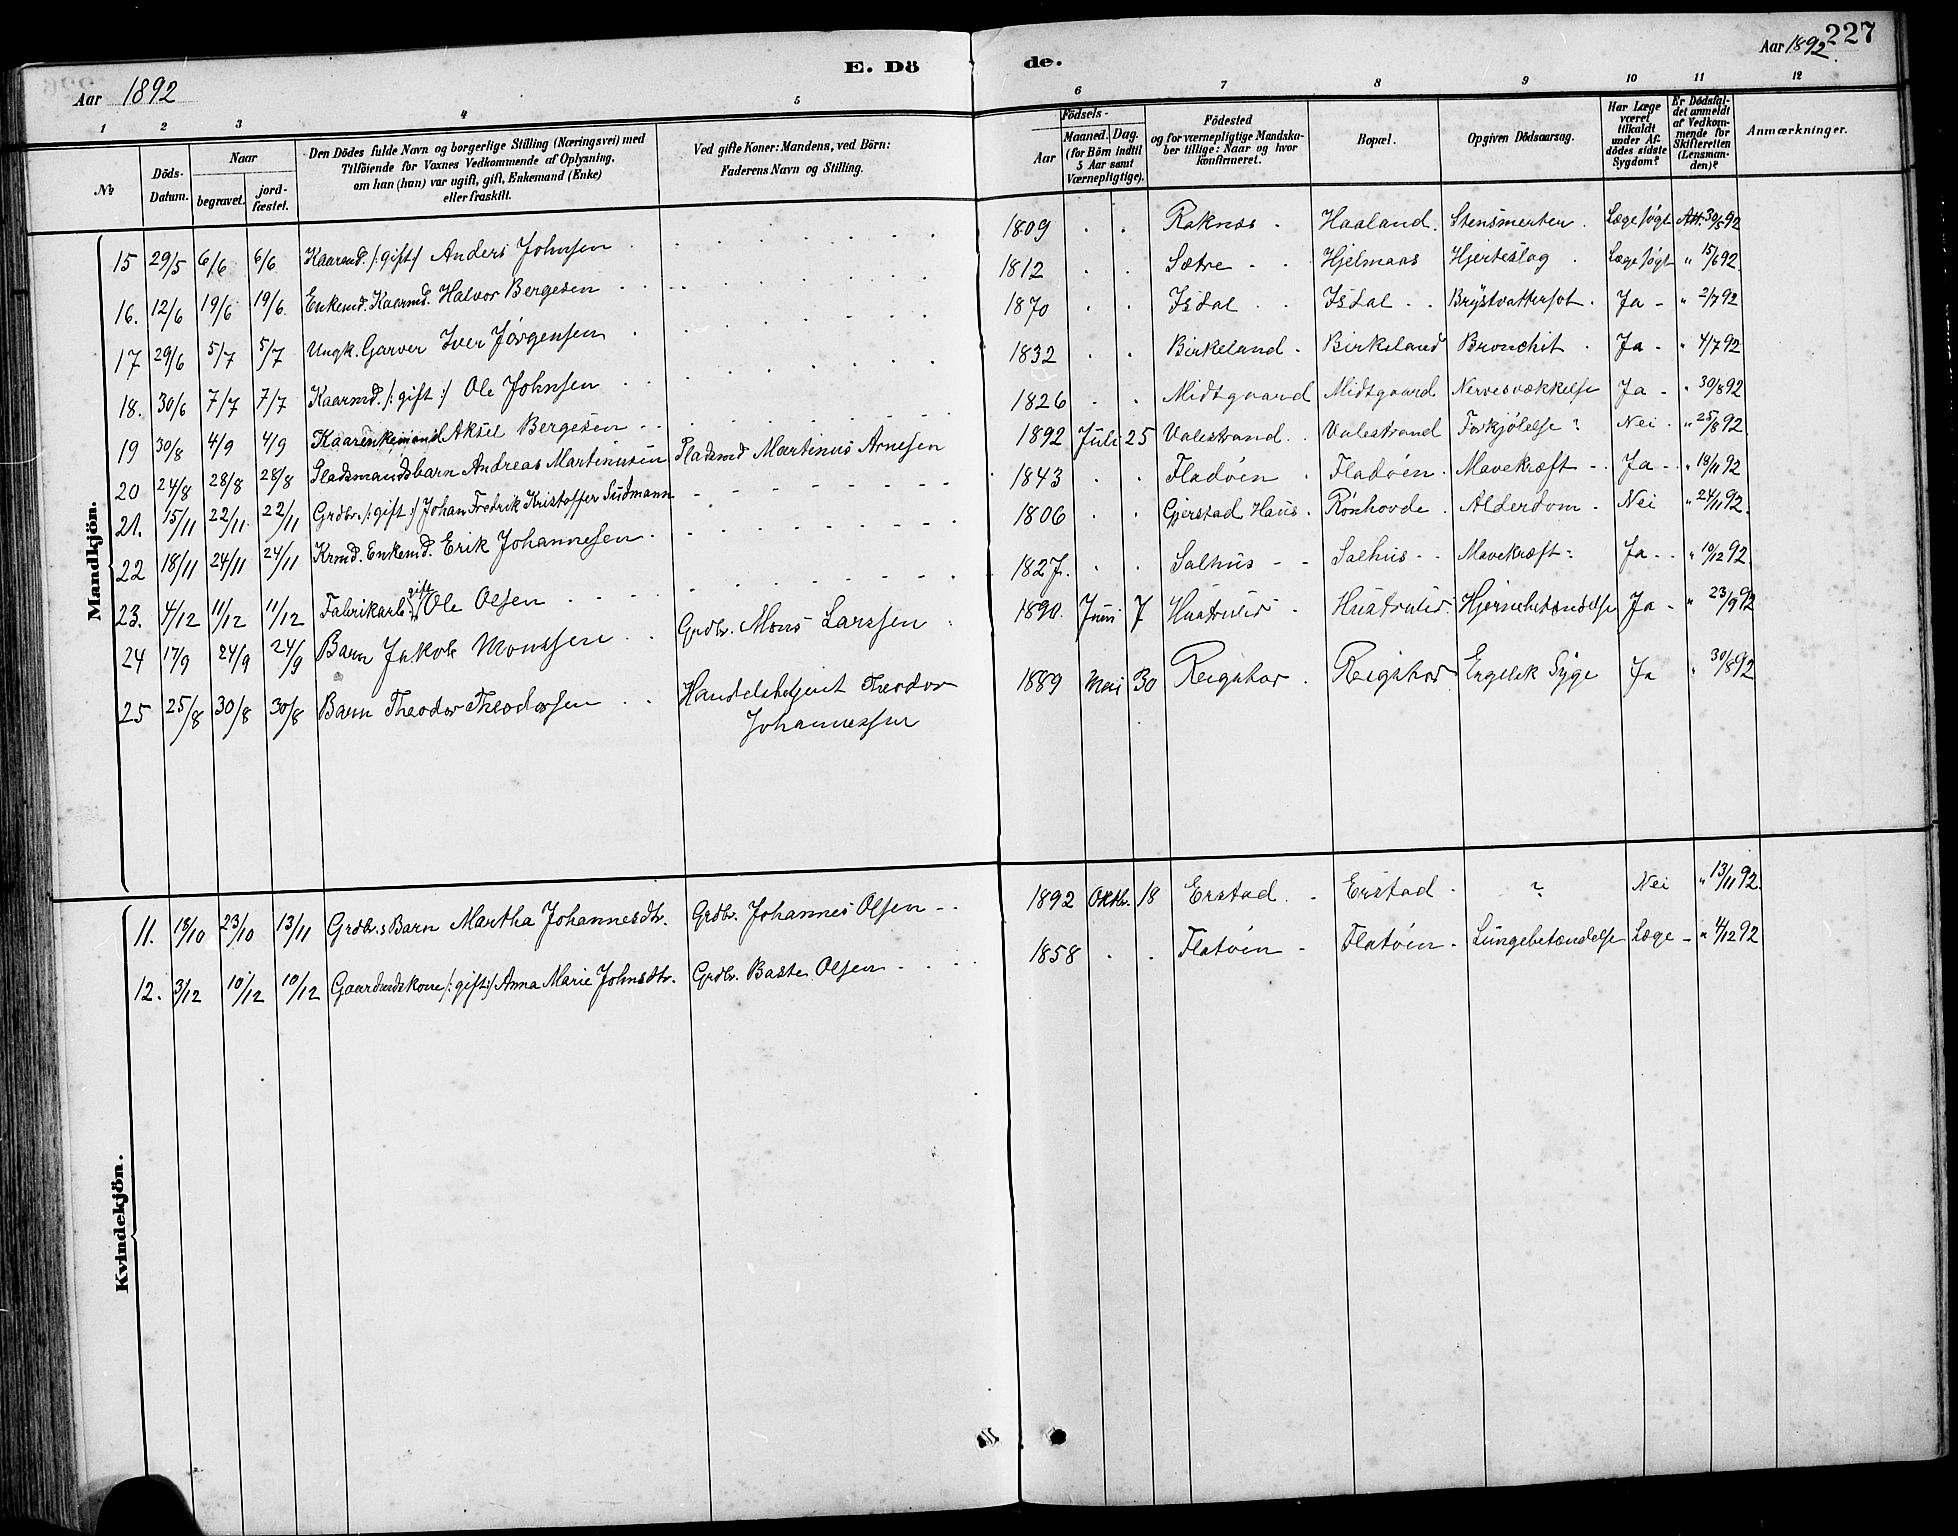 227
Aar 1892
E. Dö de.
Aar 1892.
1 2 3 4 5 6 7 8 9 10 11 12
№
Döds-Datum.
Naar
begravet.
jord-fæstet.
Den Dödes fulde Navn og borgerlige Stilling (Næringsvei) med
Tilföiende for Voxnes Vedkommende af Oplysning,
om han (hun) var ugift, gift, Enkemand (Enke)
eller fraskilt.
Ved gifte Koner: Mandens, ved Börn:
Faderens Navn og Stilling.
Födsels-
Aar
Maaned. Dag.
(for Börn indtil
5 Aar samt
Værnepligtige).
Födested
og for værnepligtige Mandska-
ber tillige: Naar og hvor
konfirmeret.
Bopæl.
Opgiven Dödsaarsag.
Har Læge
været
tilkaldt
under Af-
dödes sidste
Sygdom?
Er Dödsfal-
det anmeldt
af Vedkom-
mende for
Skifteretten
(Lensman-
den)?
Anmærkninger.
Mandkjön.
15 29/5 6/6 6/6 Kaarmd. /: gift :/ Anders Johnsen 1809 Raknes Haaland Stensmerter Læge søgt Att. 30/5 92
16. 12/6 19/6 19/6 Enkemd. Kaarmd. Halvor Bergesen 1812 Sætre Hjelmaas Hjerteslag Læge søgt " 15/6 92
17 29/6 5/7 5/7 Ungk. Garver Iver Jørgensen 1870 Isdal Isdal Brystvattersot Ja " 2/7 92
18. 30/6 7/7 7/7 Kaarmd. /: gift :/ Ole Johnsen 1832 Birkeland Birkeland Bronchit Ja " 4/7 92
19 30/8 4/9 4/9 Kaarenkemand Aksel Bergesen 1826 Midtgaard Midtgaard Nervesvækkelse Ja " 30/8 92
20 24/8 28/8 28/8 Pladsmandsbarn Andreas Martinusen Pladsmd Martinus Arnesen 1892 Juli 25 Valestrand Valestrand Forkjølelse ? Nei " 25/8 92
21. 15/11 22/11 22/11 Grdbr. /: gift :/ Johan Fredrik Kristoffer Sudmann 1843 Fladøen Fladøen Mavekræft Ja " 19/11 92
22 18/11 24/11 24/11 Krmd. Enkemd. Erik Johannesen 1806 Gjerstad Haus Rønhovde Alderdom Nei " 24/11 92
23. 4/12 11/12 11/12 Fabrikarb. gift Ole Olsen 1827 Salhus Salhus Mavekræft Ja " 10/12 92
24 17/9 24/9 24/9 Barn Jakob Monssen Grdbr. Mons Larssen 1890 Juni 7 Hjernebetændelse Ja " 23/9 92
25 25/8 30/8 30/8 Barn Theodor Theodorsen Handelsbetjent Theodor
Johannessen 1889 Mai 30 Reigstad Reigstad Engelsk Syge Ja " 30/8 92
Kvindekjön.
11. 18/10 23/10 13/11 Grdbr.s Barn Martha Johannesdtr. Grdbr. Johannes Olsen 1892 Oktbr. 18 Erstad Erstad ? Nei " 13/11 92
12. 3/12 10/12 10/12 Gaardmdskone /: gift :/ Anna Marie Johnsdtr. Grdbr. Baste Olsen 1858 Flatøen Flatøen Lungebetændelse Læge " 4/12 92